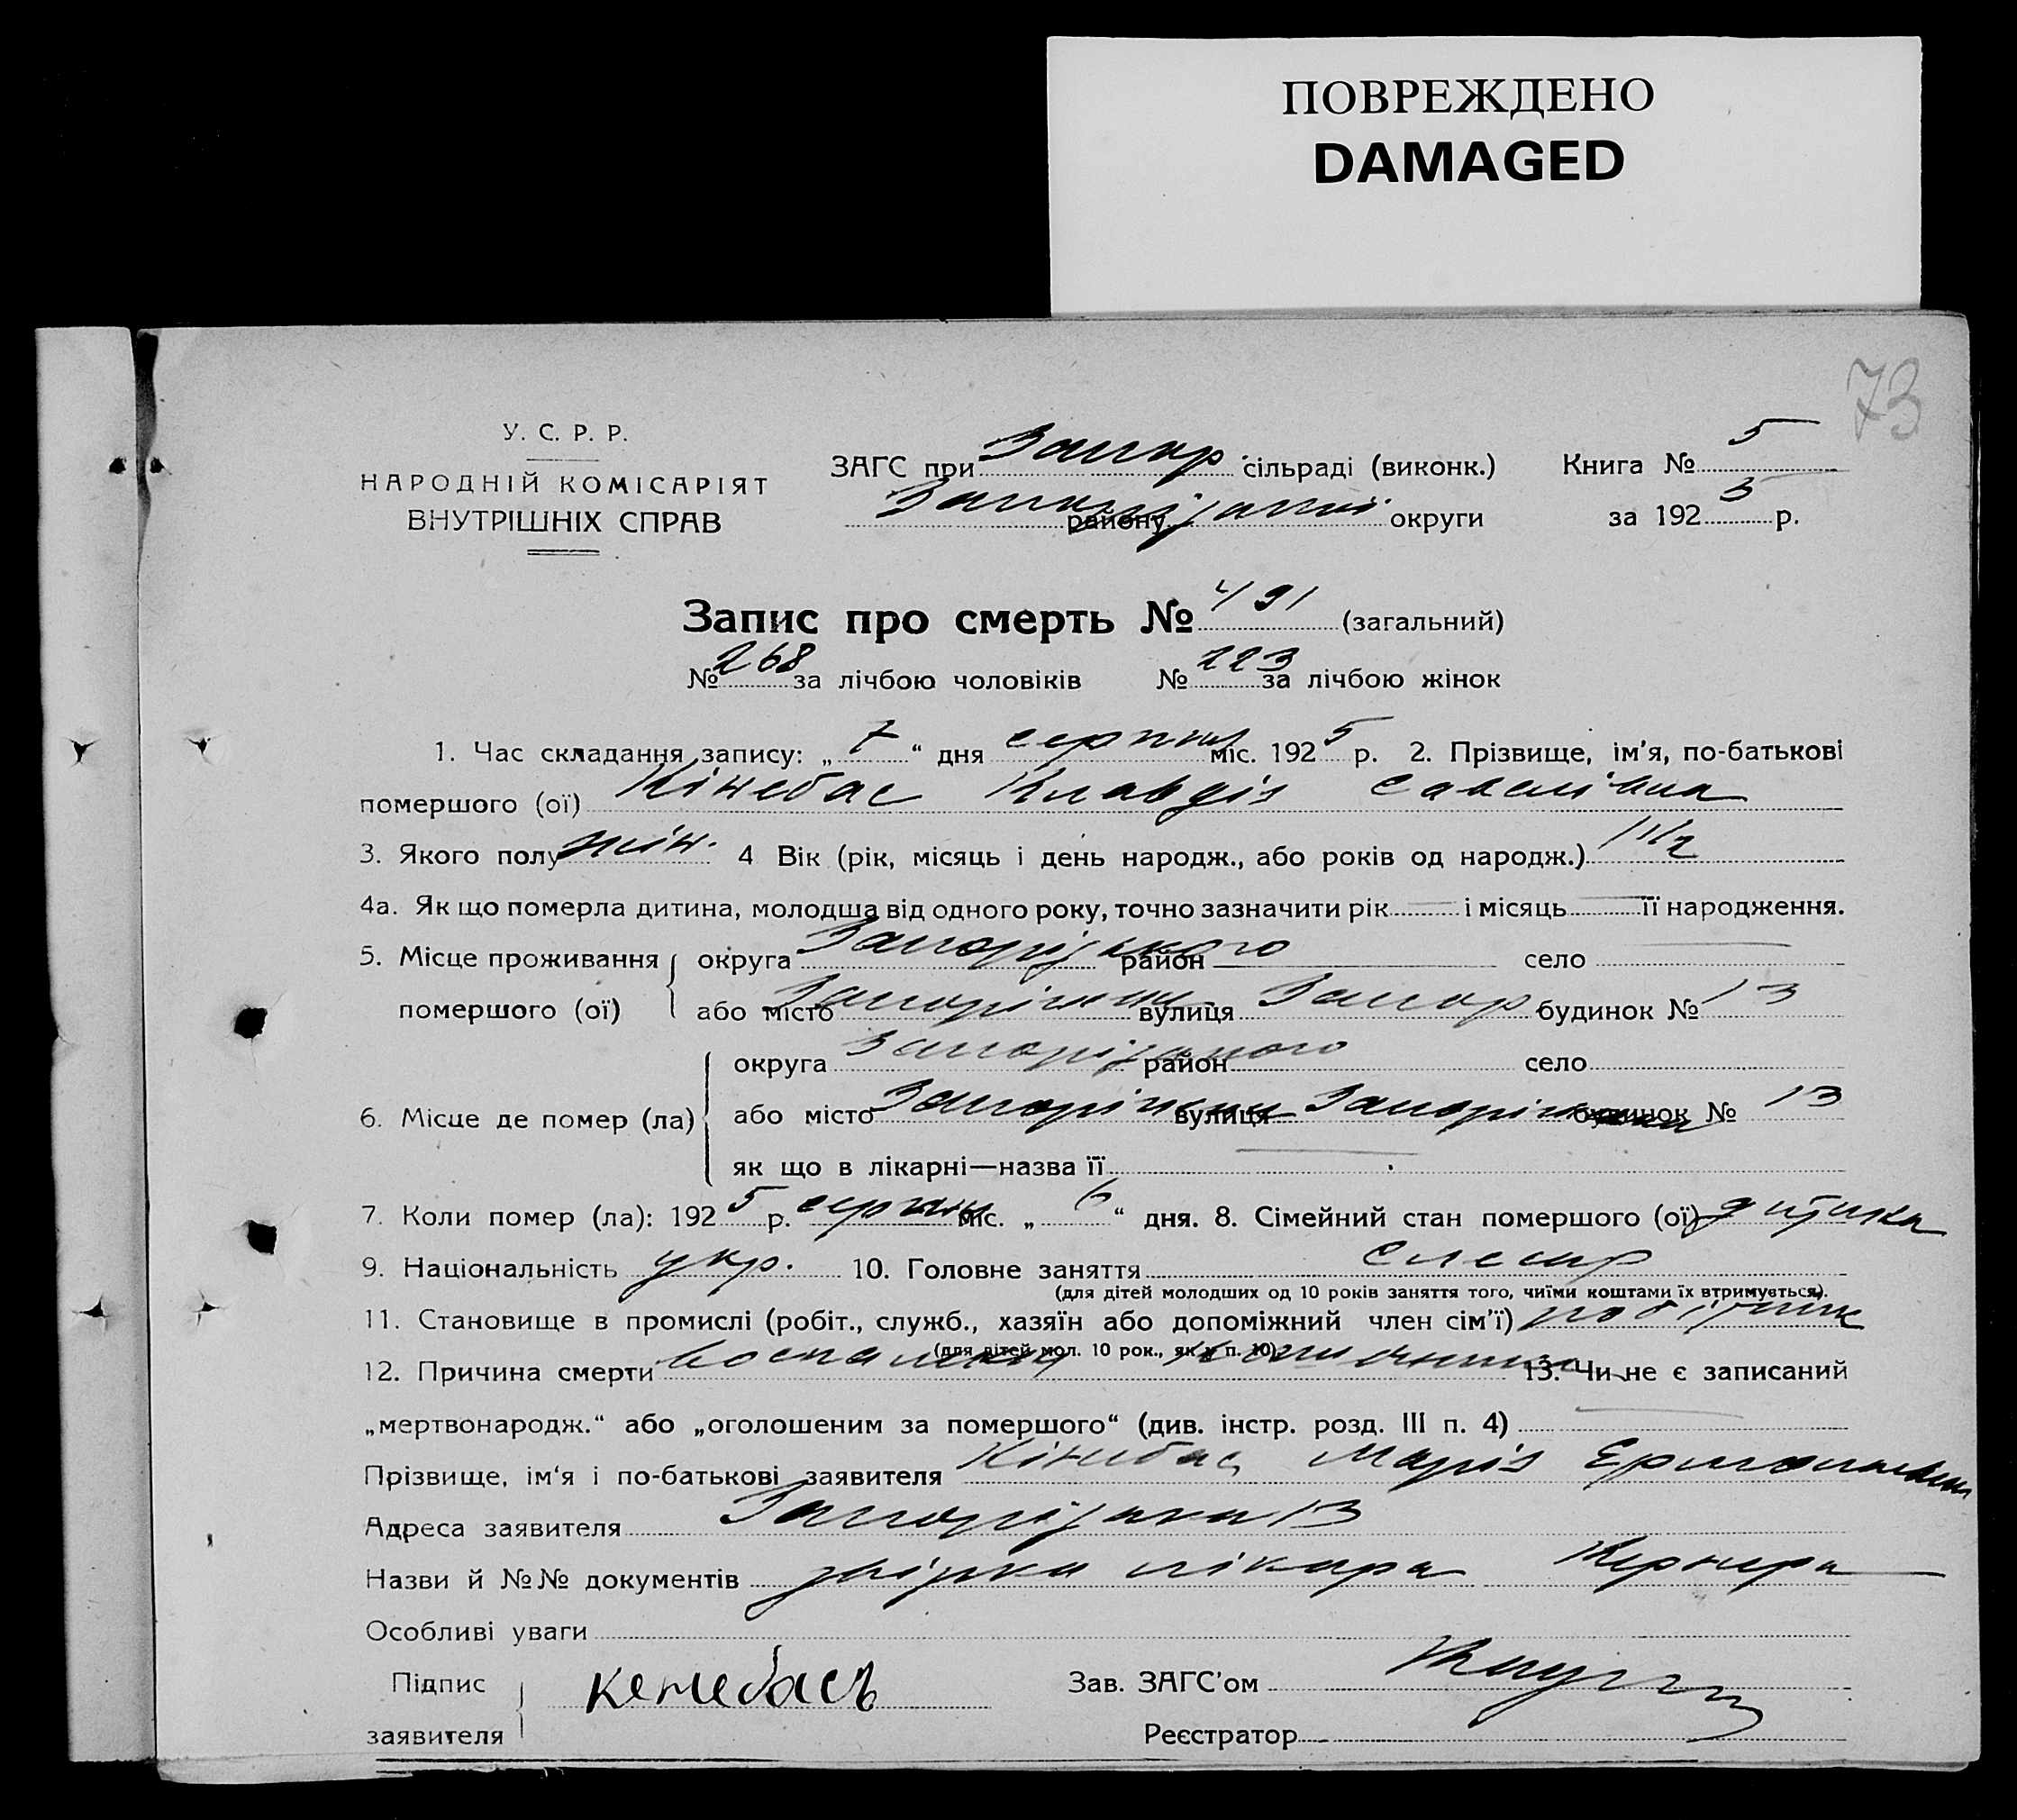 ПОВРЕЖДЕНО
DAMAGED
73
У. С. Р. Р.
НАРОДНІЙ КОМІСАРІЯТ
ВНУТРІШНІХ СПРАВ
ЗАГС при Запор. сільраді (виконк.) Книга № 5
району округи за 1925 р.
Запис про смерть № 491 (загальний)
№ 268 за лічбою чоловіків № 223 за лічбою жінок
1. Час складання запису: „ 7 “ дня серпня міс. 1925 р. 2. Прізвище, ім'я, по-батькові
помершого (ої) Кінебас Клавдія Савеліївна
3. Якого полу жін. 4 Вік (рік, місяць і день народж., або років од народж.) 1 1/2
4а. Як що померла дитина, молодша від одного року, точно зазначити рік — і місяць — її народження.
5. Місце проживання помершого (ої) округа Запорізького район село
або місто Запоріжжя вулиця Запор будинок № 13
6. Місце де помер (ла) округа Запорізького район село
або місто Запоріжжя вулиця будинок № 13
як що в лікарні—назва її
7. Коли помер (ла): 1925 р. серпня міс. „ 6 “ дня. 8. Сімейний стан помершого (ої) дитина
9. Національність укр. 10. Головне заняття слесар
(для дітей молодших од 10 років заняття того, чиїми коштами їх втримується).
11. Становище в промислі (робіт., служб., хазяїн або допоміжний член сім'ї) робітник
(для дітей мол. 10 рок., як у п. 10)
12. Причина смерти 13. Чи не є записаний
„мертвонародж.“ або „оголошеним за помершого“ (див. інстр. розд. III п. 4)
Прізвище, ім'я і по-батькові заявителя Кінебас Марія
Адреса заявителя Запорізька 13
Назви й №№ документів лікаря
Особливі уваги
Підпис заявителя Кенебасъ Зав. ЗАГС'ом
Реєстратор